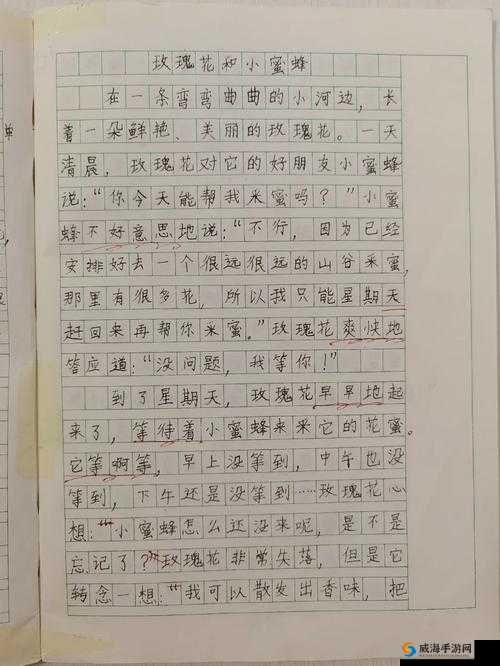 玫瑰花和小蜜蜂
在一条弯弯曲曲的小河边，长
着一朵鲜艳、美丽的玫瑰花。一天
清晨，玫瑰花对它的好朋友小蜜蜂
说：“你今天能帮我采蜜吗？”小蜜
蜂不好意思地说：“不行，因为已经
安排好去一个很远很远的山谷采蜜，
那里有很多花，所以我只能星期天
赶回来再帮你采蜜。”玫瑰花爽快地
答应道：“没问题，我等你！”
到了星期天，玫瑰花早早地起
来了，等待着小蜜蜂来采它的花蜜。
它等啊等，早上没等到，中午也没
等到，下午还是没等到……玫瑰花心
想：“小蜜蜂怎么还没来呢，是不是
忘记了？”玫瑰花非常失落，但是它
转念一想：“我可以散发出香味，把
威海手游网